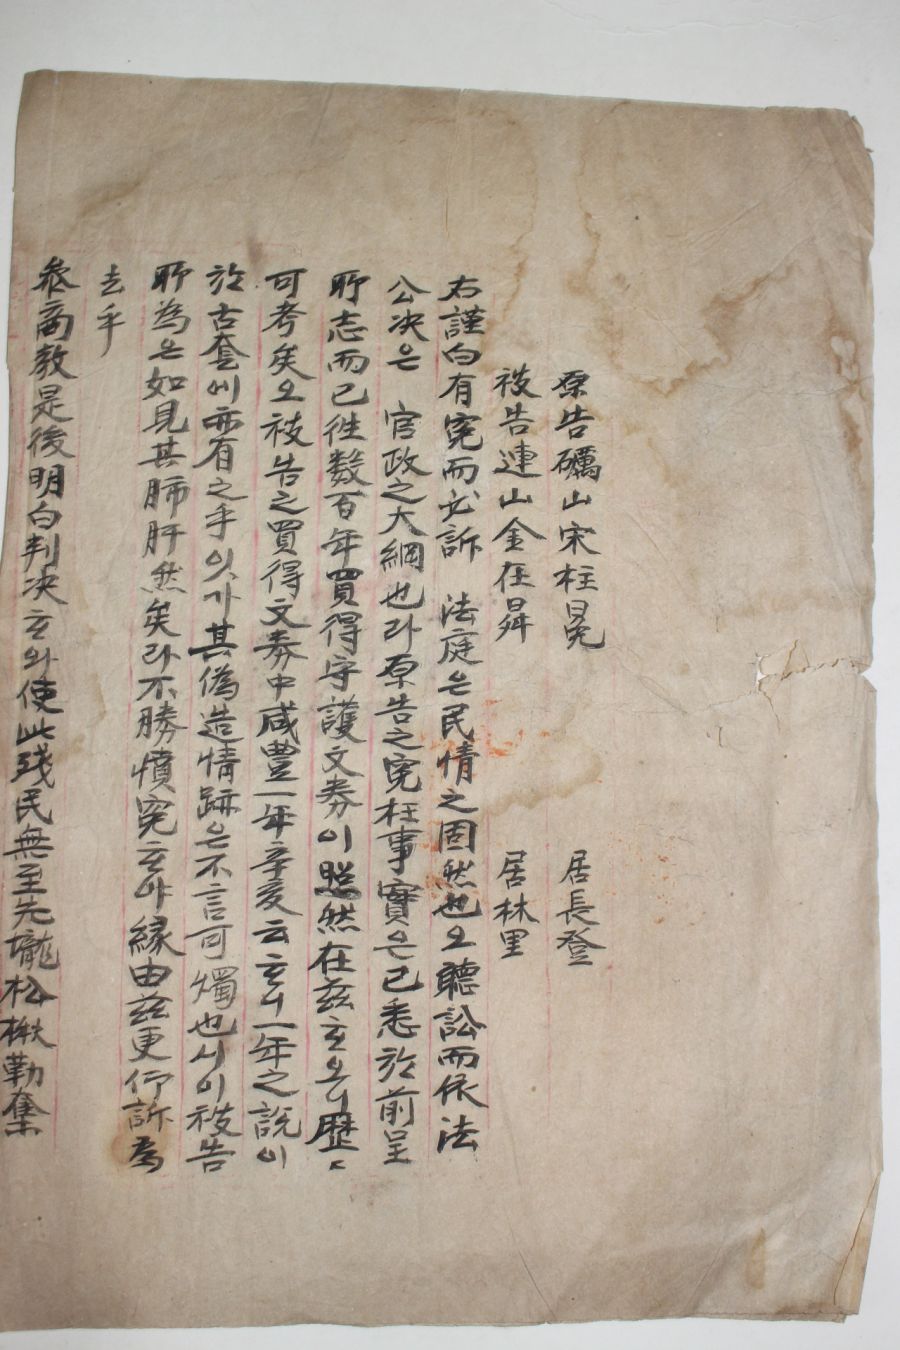 原告礪山宋柱冕 居長登
被告連山金在昇 居林里
右謹白有寃而必訴 法庭은民情之固然也오聽訟而依法
公决은 官政之大綱也라原告之寃枉事實은已悉於前呈
所志而已徃數百年買得守護文券이照然在玆立오니歷〻
可考矣오被告之買得文券中咸豊一年辛亥云立니一年之說이
於古套에亦有之乎잇가其偽造情跡은不言可燭也시이被告
所為은如見其肺肝然矣라不勝憤寃立야緣由玆更仰訴為
去乎
叅商敎是後明白判决立와使此殘民無至先壠松楸勒奪